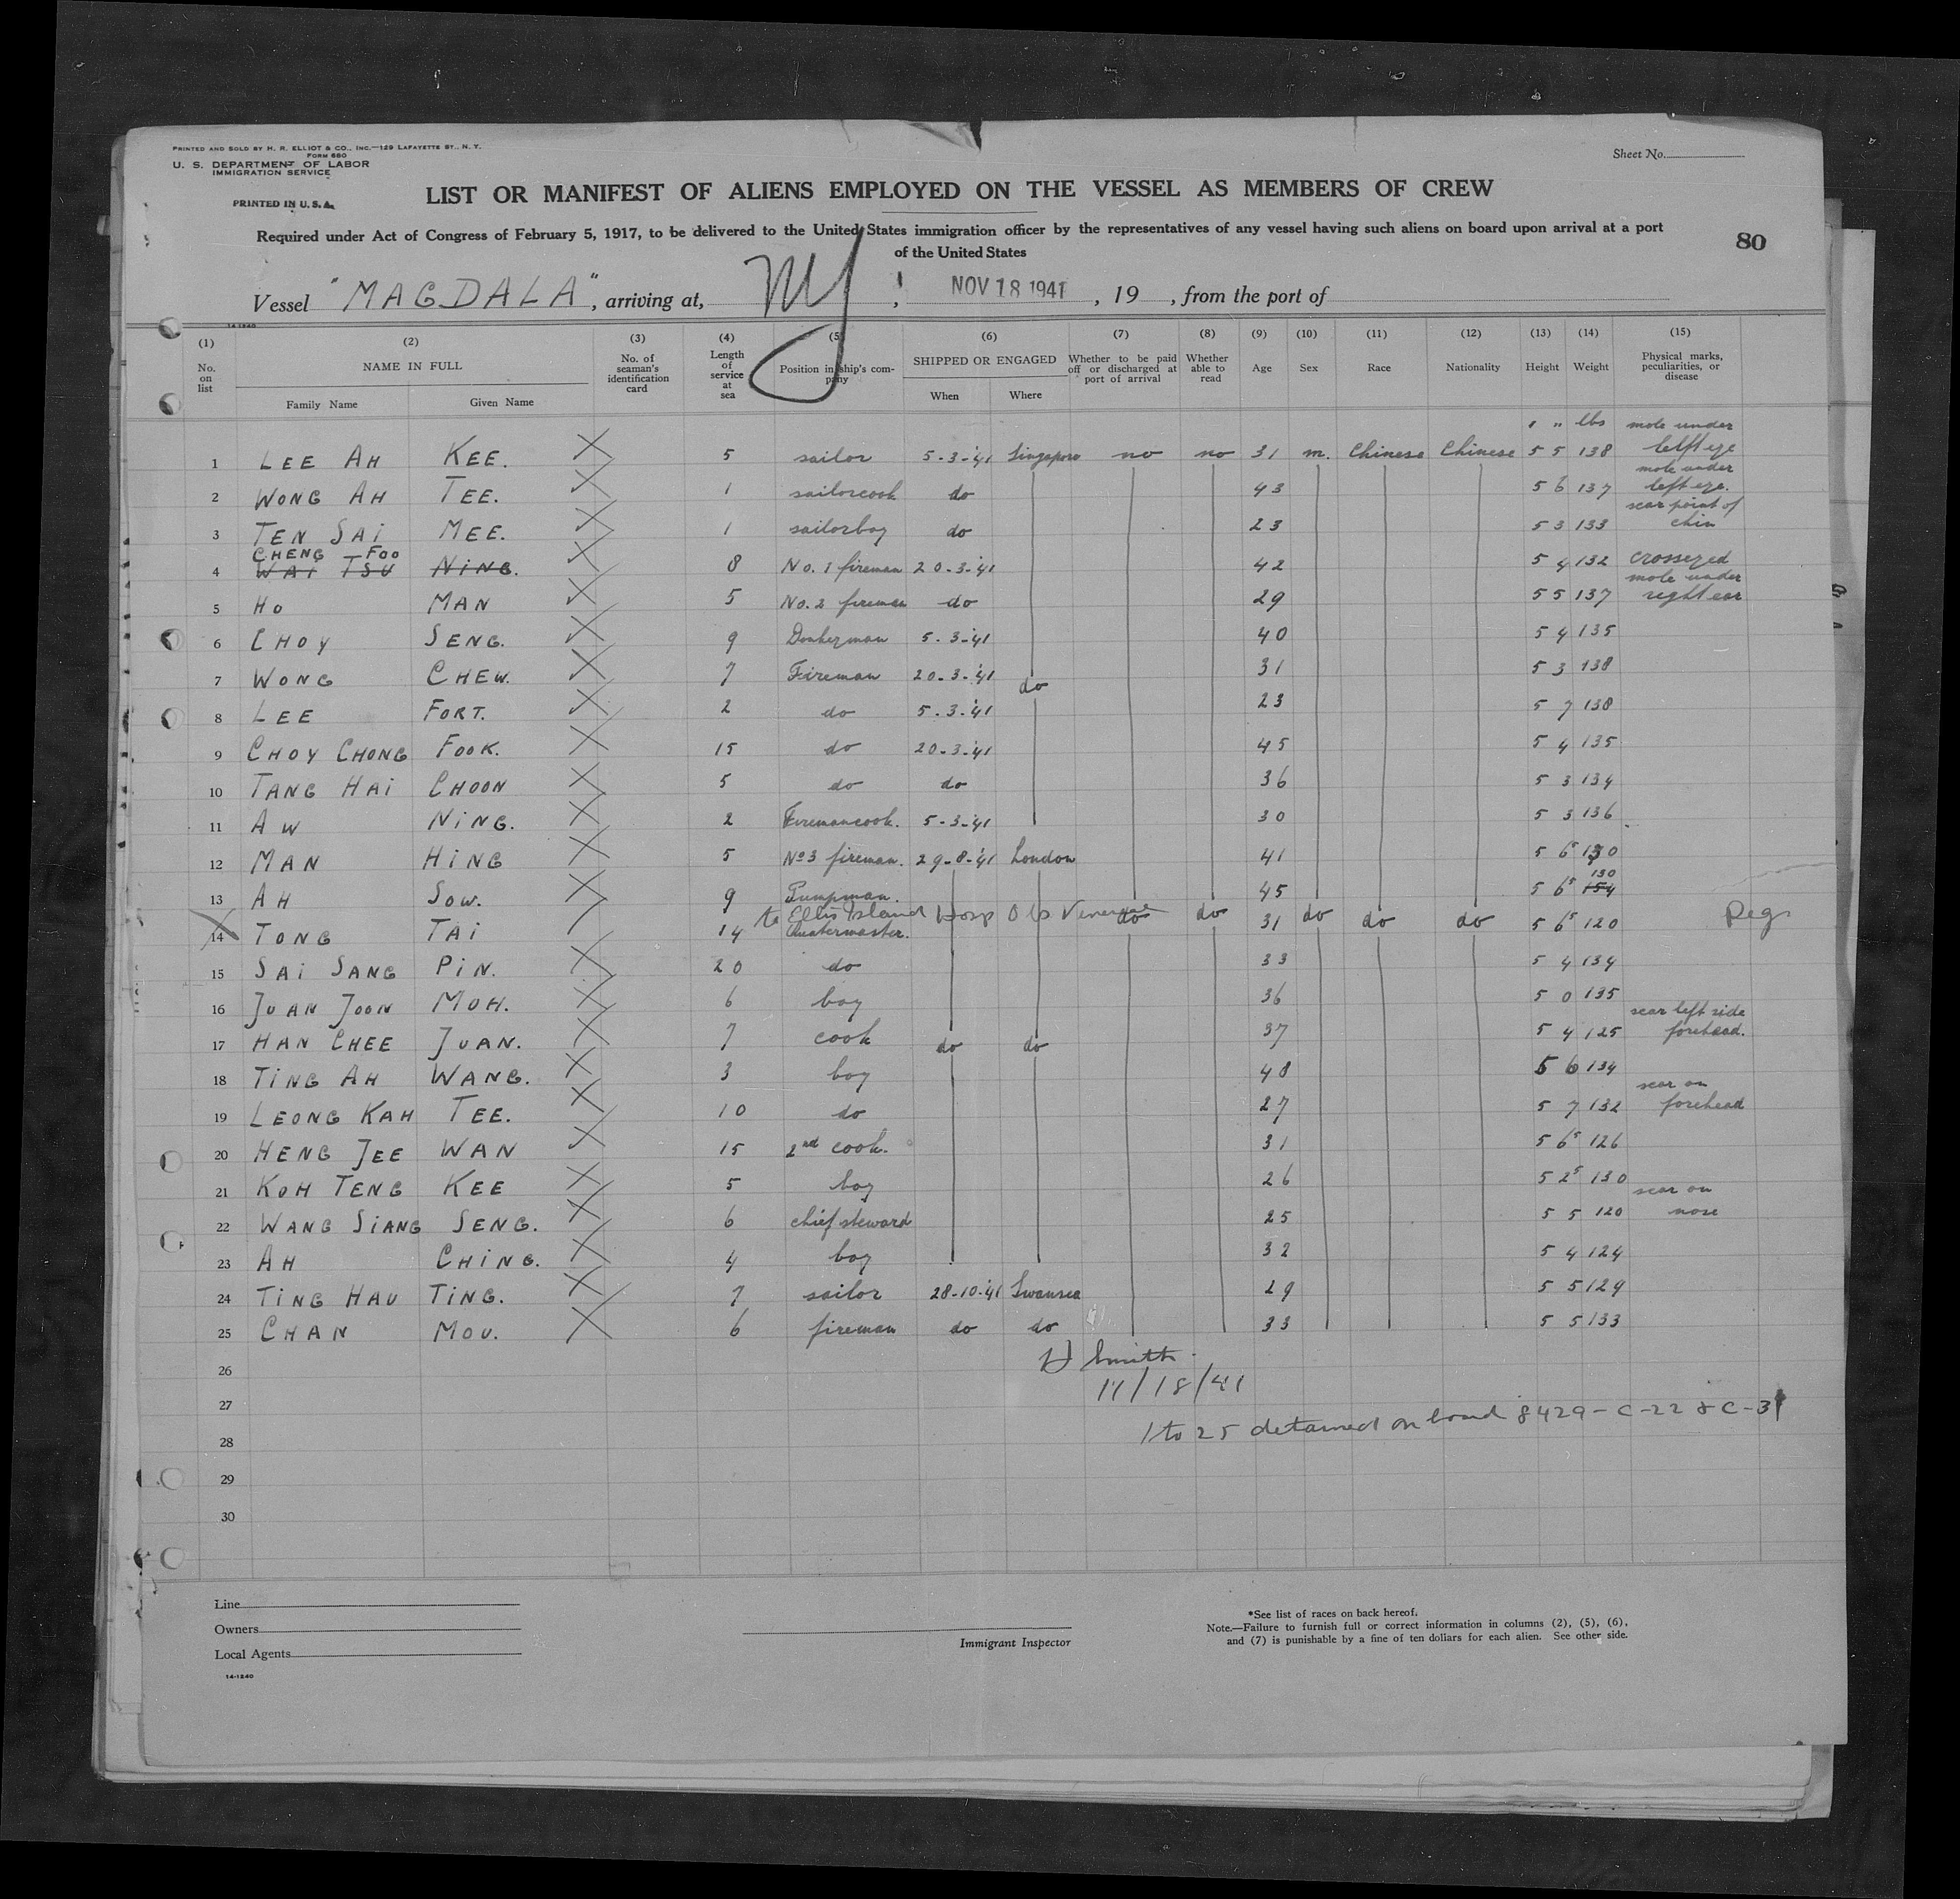 PRINTED AND SOLD BY H. R. ELLIOT & CO., INC.—129 LAFAYETTE ST., N. Y.
FORM 680
U. S. DEPARTMENT OF LABOR
IMMIGRATION SERVICE
PRINTED IN U. S. A.
Sheet No.
LIST OR MANIFEST OF ALIENS EMPLOYED ON THE VESSEL AS MEMBERS OF CREW
Required under Act of Congress of February 5, 1917, to be delivered to the United States immigration officer by the representatives of any vessel having such aliens on board upon arrival at a port
of the United States
80
Vessel "MAGDALA", arriving at, NY, NOV 18 1941, 19 , from the port of
14-1240
(1) No. on list (2) NAME IN FULL Family Name Given Name (3) No. of seaman's identification card (4) Length of service at sea (5) Position in ship's company (6) SHIPPED OR ENGAGED When Where (7) Whether to be paid off or discharged at port of arrival (8) Whether able to read (9) Age (10) Sex (11) Race (12) Nationality (13) Height (14) Weight (15) Physical marks, peculiarities, or disease
' " lbs
1 LEE AH KEE. 5 sailor 5-3-'41 Singapore no no 31 m. Chinese Chinese 5 5 138 mole under left eye
2 WONG AH TEE. 1 sailorcook do 43 5 6 137 mole under left eye.
3 TEN SAI MEE. 1 sailorboy do 23 5 3 133 scar point of chin
CHENG FOO
4 WAI TSU NING. 8 No. 1 fireman 20-3-'41 42 5 4 132 crosseyed
5 HO MAN 5 No. 2 fireman do 29 5 5 137 mole under right ear
6 CHOY SENG. 9 Donkeyman 5.3-'41 40 5 4 135
7 WONG CHEW. 7 Fireman 20.3-'41 do 31 5 3 138
8 LEE FORT. 2 do 5.3.'41 23 5 7 138
9 CHOY CHONG FOOK. 15 do 20-3-'41 45 5 4 135
10 TANG HAI CHOON 5 do do 36 5 3 134
11 AW NING. 2 Firemancook. 5-3-'41 30 5 3 136
12 MAN HING 5 No 3 fireman. 29-8-'41 London 41 5 6 130
13 AH SOW. 9 Pumpman. 45 5 6⁵ 154 130
to Ellis Island Hosp Obs Venereal
14 TONG TAI 14 Quatermaster. do do 31 do do do 5 6⁵ 120
15 SAI SANG PIN. 20 do 33 5 4 134
16 JUAN JOON MOH. 6 boy 36 5 0 135
17 HAN CHEE JUAN. 7 cook do do 37 5 4 125 scar left side forehead.
18 TING AH WANG. 3 boy 48 5 6 134
19 LEONG KAH TEE. 10 do 27 5 7 132 scar on forehead
20 HENG JEE WAN 15 2nd cook. 31 5 6⁵ 126
21 KOH TENG KEE 5 boy 26 5 2⁵ 130
22 WANG SIANG SENG. 6 chief steward 25 5 5 120 scar on nose
23 AH CHING. 4 boy 32 5 4 124
24 TING HAU TING. 7 sailor 28-10-'41 Swansea 29 5 5 129
25 CHAN MOU. 6 fireman do do 33 5 5 133
26
H Smith
11/18/41
27
1 to 25 detained on board 8429-C-22 & C-31
28
29
30
Line
Owners
Local Agents
14-1240
Immigrant Inspector
*See list of races on back hereof.
Note.—Failure to furnish full or correct information in columns (2), (5), (6),
and (7) is punishable by a fine of ten dollars for each alien. See other side.